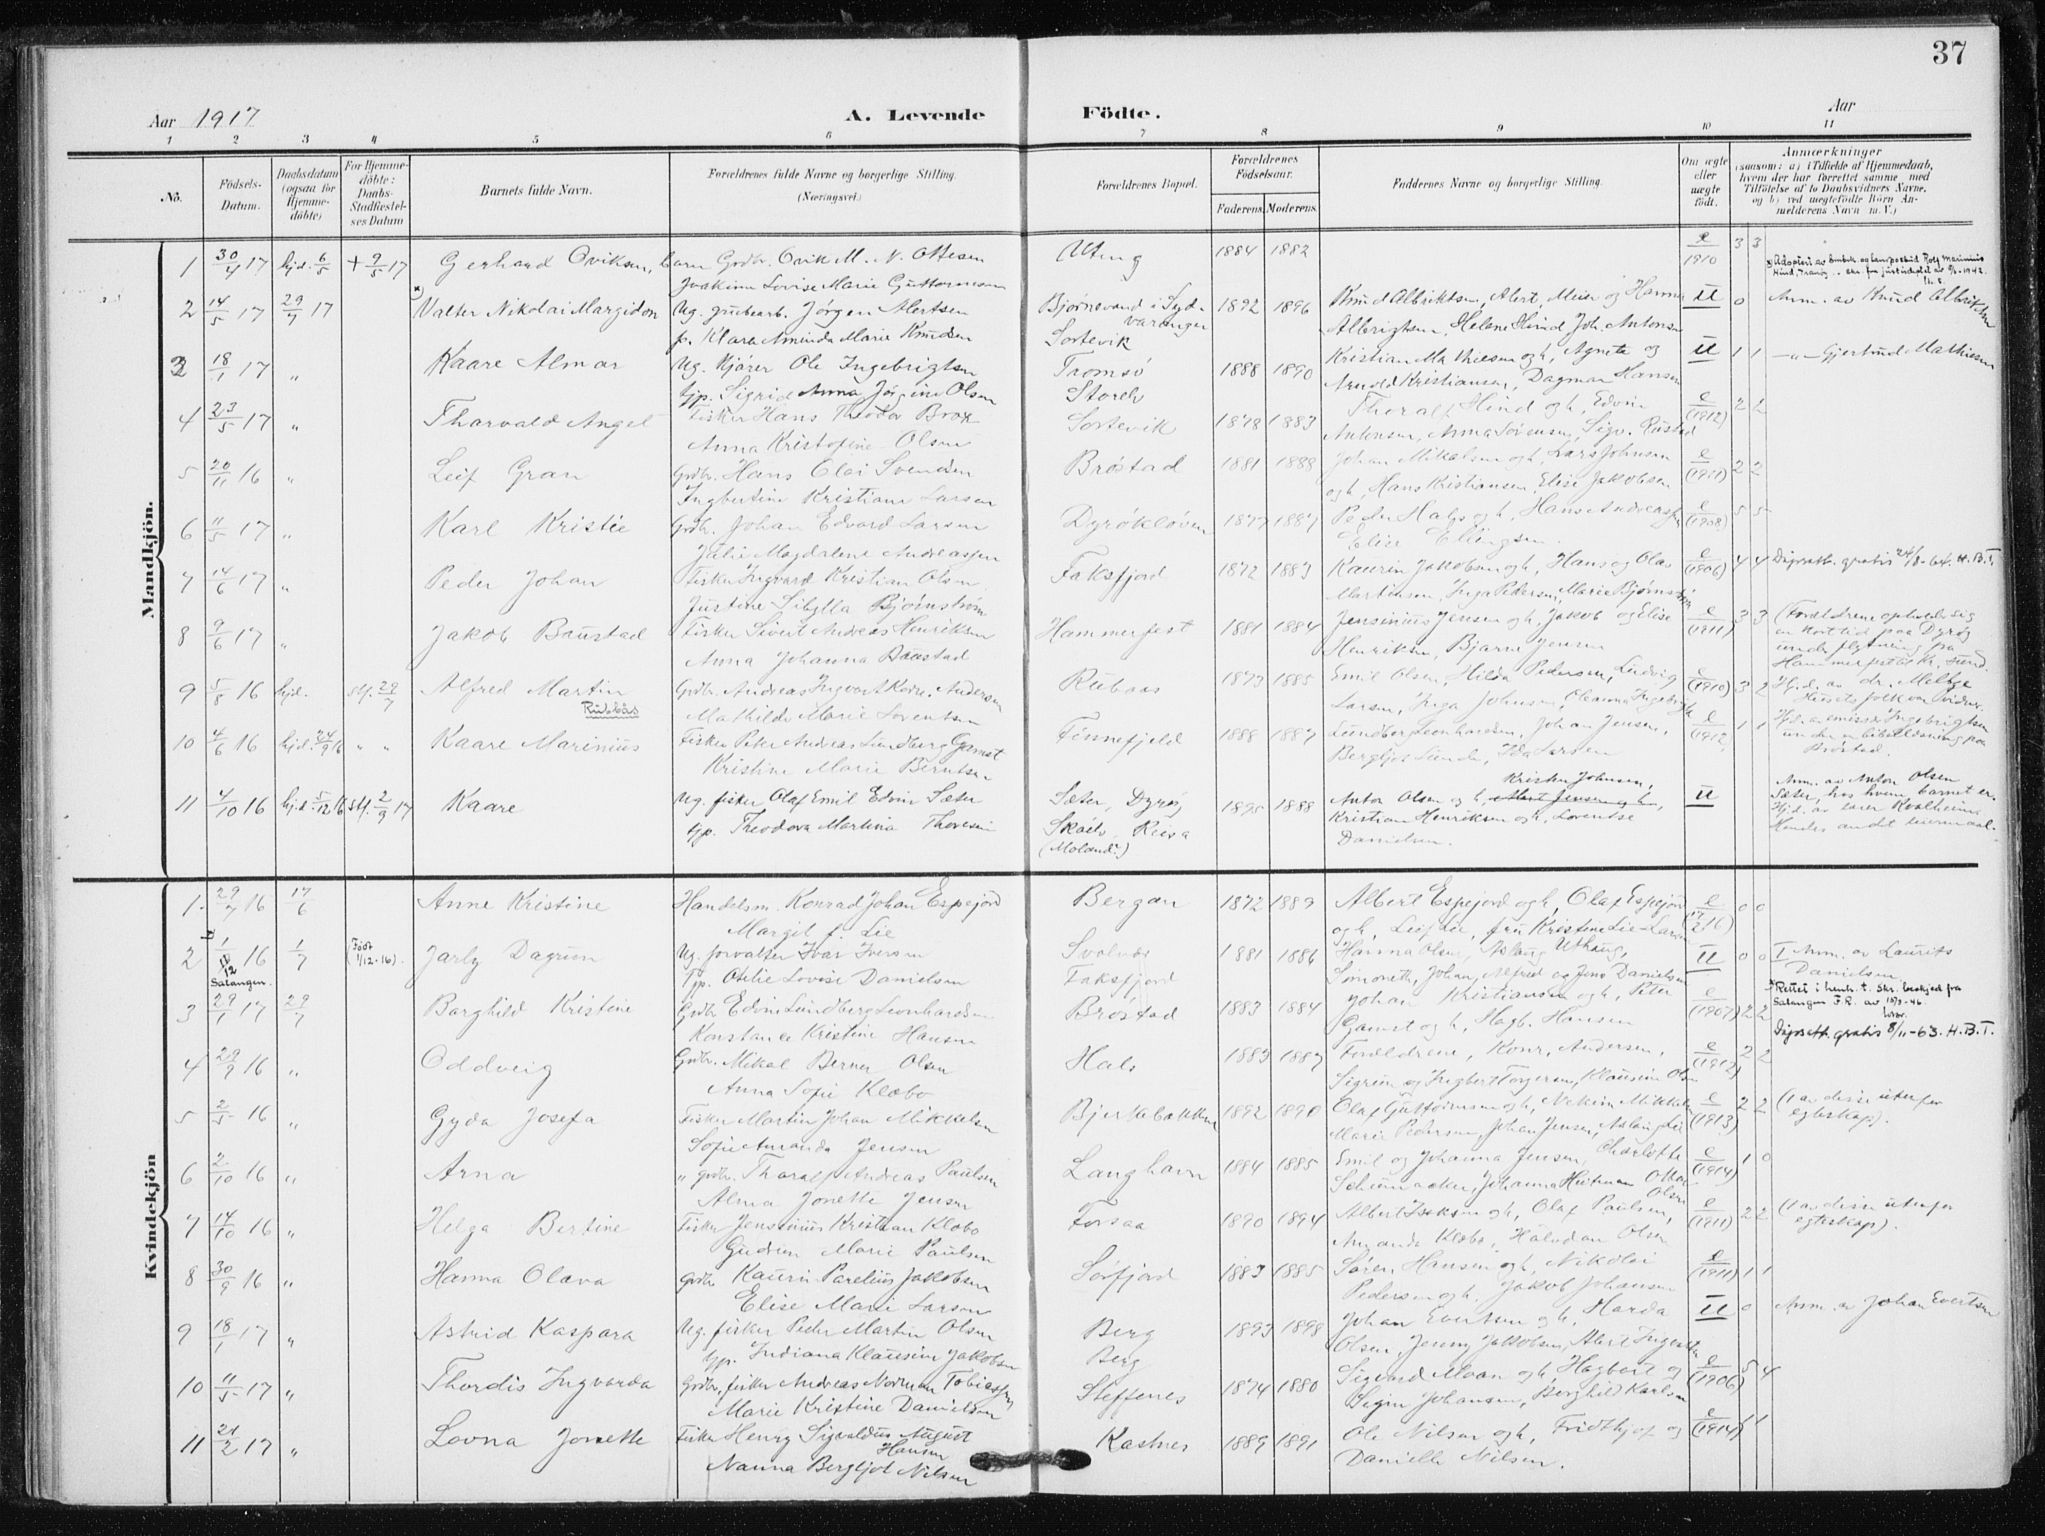 37
Aar 1917
A. Levende
Födte.
Aar
1 2 3 4 5 6 7 8 9 10 11
No.
Födsels-Datum.
Daabsdatum (ogsaa for Hjemme-döbte)
For Hjemme-döbte: Daabs-Stadfæstel-ses Datum
Barnets fulde Navn.
Forældrenes fulde Navne og borgerlige Stilling.
(Næringsvei.)
Forældrenes Bopæl.
Forældrenes Födselsaar.
Faderens. Moderens.
Faddernes Navne og borgerlige Stilling.
Om ægte eller uægte födt.
Anmærkninger
(saasom: a) i Tilfælde af Hjemmedaab, hvem der har forrettet samme, med Tilföielse af to Daabsvidners Navne, og b) ved uægtefödte Börn An-melderens Navn m. V.)
Mandkjön.
1 30/4 17 hjd. 6/5 + 9/5 17 Gerhard Oviksen, barn Grdbr. Ovik M. N. Ottesen Uteng 1884 1882 e 1910 3 3
Joakine Lovise Marie Guttormsen
2 14/5 17 29/7 17 Valter Nikolai Margidon Ug. grubearb. Jørgen Alertsen Bjørnevand i Syd-varanger 1892 1896 Knud Albriktsen, Alert, Meier og Hanna U 0 Anm. av Knud Albriktsen
p. Klara Aminda Marie Knudsen Sortevik Albrigtsen, Helene Hind, Joh. Antonsen
3 18/1 17 " Kaare Almar Ug. Kjører Ole Ingebrigtsen Tromsø 1888 1890 Kristian Mathiesen og h., Agneta og U 1 1 —"— Gjertrud Mathiesen
tjp. Sigrid Anna Jørgine Olsen Storelv Arnold Kristiansen, Dagmar Hansen
4 23/5 17 " Tharvald Angel Fisker Hans Theodor Brox Sortevik 1878 1883 Thoralf Hind og h., Edvin e (1912) 2 2
Anna Kristofine Olsen Antonsen, Anna Sørensen, Sigv. Rustad
5 20/11 16 " Leif Gran Grdbr. Hans Olai Svendsen Brøstad 1881 1888 Johan Mikalsen og h., Lars Johnsen e (1911) 2 2
Ingbertine Kristiane Larsen og h., Hans Kristiansen, Elise Jakobsen
6 11/5 17 " Karl Kristie Grdbr. Johan Edvard Larsen Dyrøkløven 1877 1887 Peder Hals og h., Hans Andreassen e (1908) 5 5
Julie Magdalene Andreassen Elise Ellingsen.
7 14/6 17 " Peder Johan Fisker Ingvard Kristian Olsen Faksfjord 1872 1883 Kaurin Jakobsen og h., Hans og Olav e (1906) 4 4 Dipsatt. gratis 24/8-64. H.B.T.
Justine Sibylla Bjørnstrøm Martinsen, Inga Pedersen, Marie Bjørnstrøm
8 9/6 17 " Jakob Baustad Fisker Sivert Andreas Henriksen Hammerfest 1881 1884 Jensinius Jensen og h., Jakob og Elise e (1911) 3 3 (Forældrene opholdt sig en kort tid paa Dyrøy
Anna Johanna Baustad Henriksen, Bjarne Jensen under flytning fra Hammerfest til K. sund.
9 5/8 16 hjd. stf. 29/7 Alfred Martin Rubbås Grdbr. Andreas Ingvart Andersen Rubaas 1879 1885 Emil Olsen, Hilda Pedersen, Ludvig e (1910) 3 2 Hjd. av dr. Melbye
Mathilde Marie Lorentsen Larsen, Inga Johnsen, Oleanna Ingebrigts. Husets folk var vidner.
10 4/6 16 hjd. 24/9 16 " " Kaare Marinius Fisker Peter Andreas Lundberg Gamst Finnefjeld 1888 1887 Lundberg Leonhardsen, Johan Jensen, e 1912 1 1 Hjd. av emissær Ingebrigtsen
Kristine Marie Berntsen Bergljot Lunde, Ida Larsen under en bibellæsning paa Brøstad.
11 4/10 16 hjd. 5/12 16 stf. 2/9 17 Kaare Ug. fisker Olaf Emil Edvin Sæter Sæter, Dyrøy 1895 1888 Anton Olsen og h., Kristen Johnsen, U Anm. av Anton Olsen Sæter, hos hvem barnet er.
tjp. Theodora Martina Thoresen Skøelv, Reisa (Moland?) Kristian Henriksen og h., Lorentse Danielsen. Hjd. av lærer Kvalheim. Hendes andet leiermaal.
Kvindekjön
1 29/7 16 17/6 Anne Kristine Handelsm. Konrad Johan Espejord Bergan 1872 1889 Albert Espejord og h., Olaf Espejord e 0 0
Margit f. Lie og h., Leif Lie, fru Kristine Lie-Larsen
2 1/12 16 Salangen 1/7 (Født 1/12-16). Jarly Dagrun Ug. forvalter Ivar Iversen Svolvær 1881 1886 Hanna Olsen, Aslaug Uthaug, U 0 0 Anm. av Laurits Danielsen
Tjp. Otelie Lovise Danielsen Faksfjord Simoneth, Johan, Alfred og Jens Danielsen Rettet i henh. t. Skr. beskjed fra Salangen F.R. av 15/3-46.
3 29/1 17 29/7 Borghild Kristine Grdbr. Edvin Lundberg Leonhardsen Brøstad 1883 1884 Johan Kristiansen og h., Peter e (1907) 2 2 Dipsatt. gratis 8/11-63. H.B.T.
Konstanse Kristine Hansen Gamst og h., Hagb. Hansen
4 29/9 16 " Oddveig Grdbr. Mikal Berner Olsen Hals 1883 1887 Forældrene, Konr. Andersen, e (1912) 2 2
Anna Sofie Klæbo Sigrun og Ingbert Torgersen, Klausine Olsen
5 2/5 16 " Gyda Josefa Fisker Martin Johan Mikkelsen Bjerkebakken 1892 1890 Olaf Guttormsen og h., Mikkelsen e (1913) 2 2 (1 av disse utenfor egteskap).
Sofie Amanda Jensen Marie Pedersen, Johan Jensen, Aslaug Lie
6 2/10 16 " Arna " grdbr. Tharalf Andreas Paulsen Langhavn 1884 1885 Emil og Johanna Jensen, Charlotte e (1914) 1 0
Alma Jonette Jensen Schumacker, Johanna
7 14/10 16 " Helga Bertine Fisker Jensinius Kristian Klæbo Forsaa 1890 1894 Albert Isaksen og h., Olaf Paulsen, e (1911) 2 2 (1 av disse utenfor egteskap).
Gudrun Marie Paulsen Amanda Klæbo, Halvdan Olsen
8 30/9 16 " Hanna Olava grdbr Kaurin Parelius Jakobsen Sørfjord 1883 1885 Søren Hansen og h., Nikolai e (1911) 1 1
Elise Marie Larsen Pedersen og h., Jakob Johansen
9 18/1 17 " Astrid Kaspara Ug. fisker Peder Martin Olsen Berg 1893 1898 Johan Evertsen og h., Harda U 0 Anm. av Johan Evertsen
tjp. Indiana Klausine Jakobsen Berg Olsen, Jenny Jakobsen, Albert Ingertsen
10 11/5 17 " Thordis Ingvarda Grdbr., fisker Andreas Normann Tobiassen Steffenes 1874 1880 Sigurd Moan og h., Hagbert og e (1906) 5 4
Marie Kristine Danielsen Sigin Johansen, Berghild Karlsen
11 21/2 17 " Lovna Jonette Fisker Henry Sigvaldus August Hansen Kastnes 1889 1891 Ole Nilsen og h., Fridthjof og e (1914) 1 1
Nanna Bergljot Nilsen Danielle Nilsen.